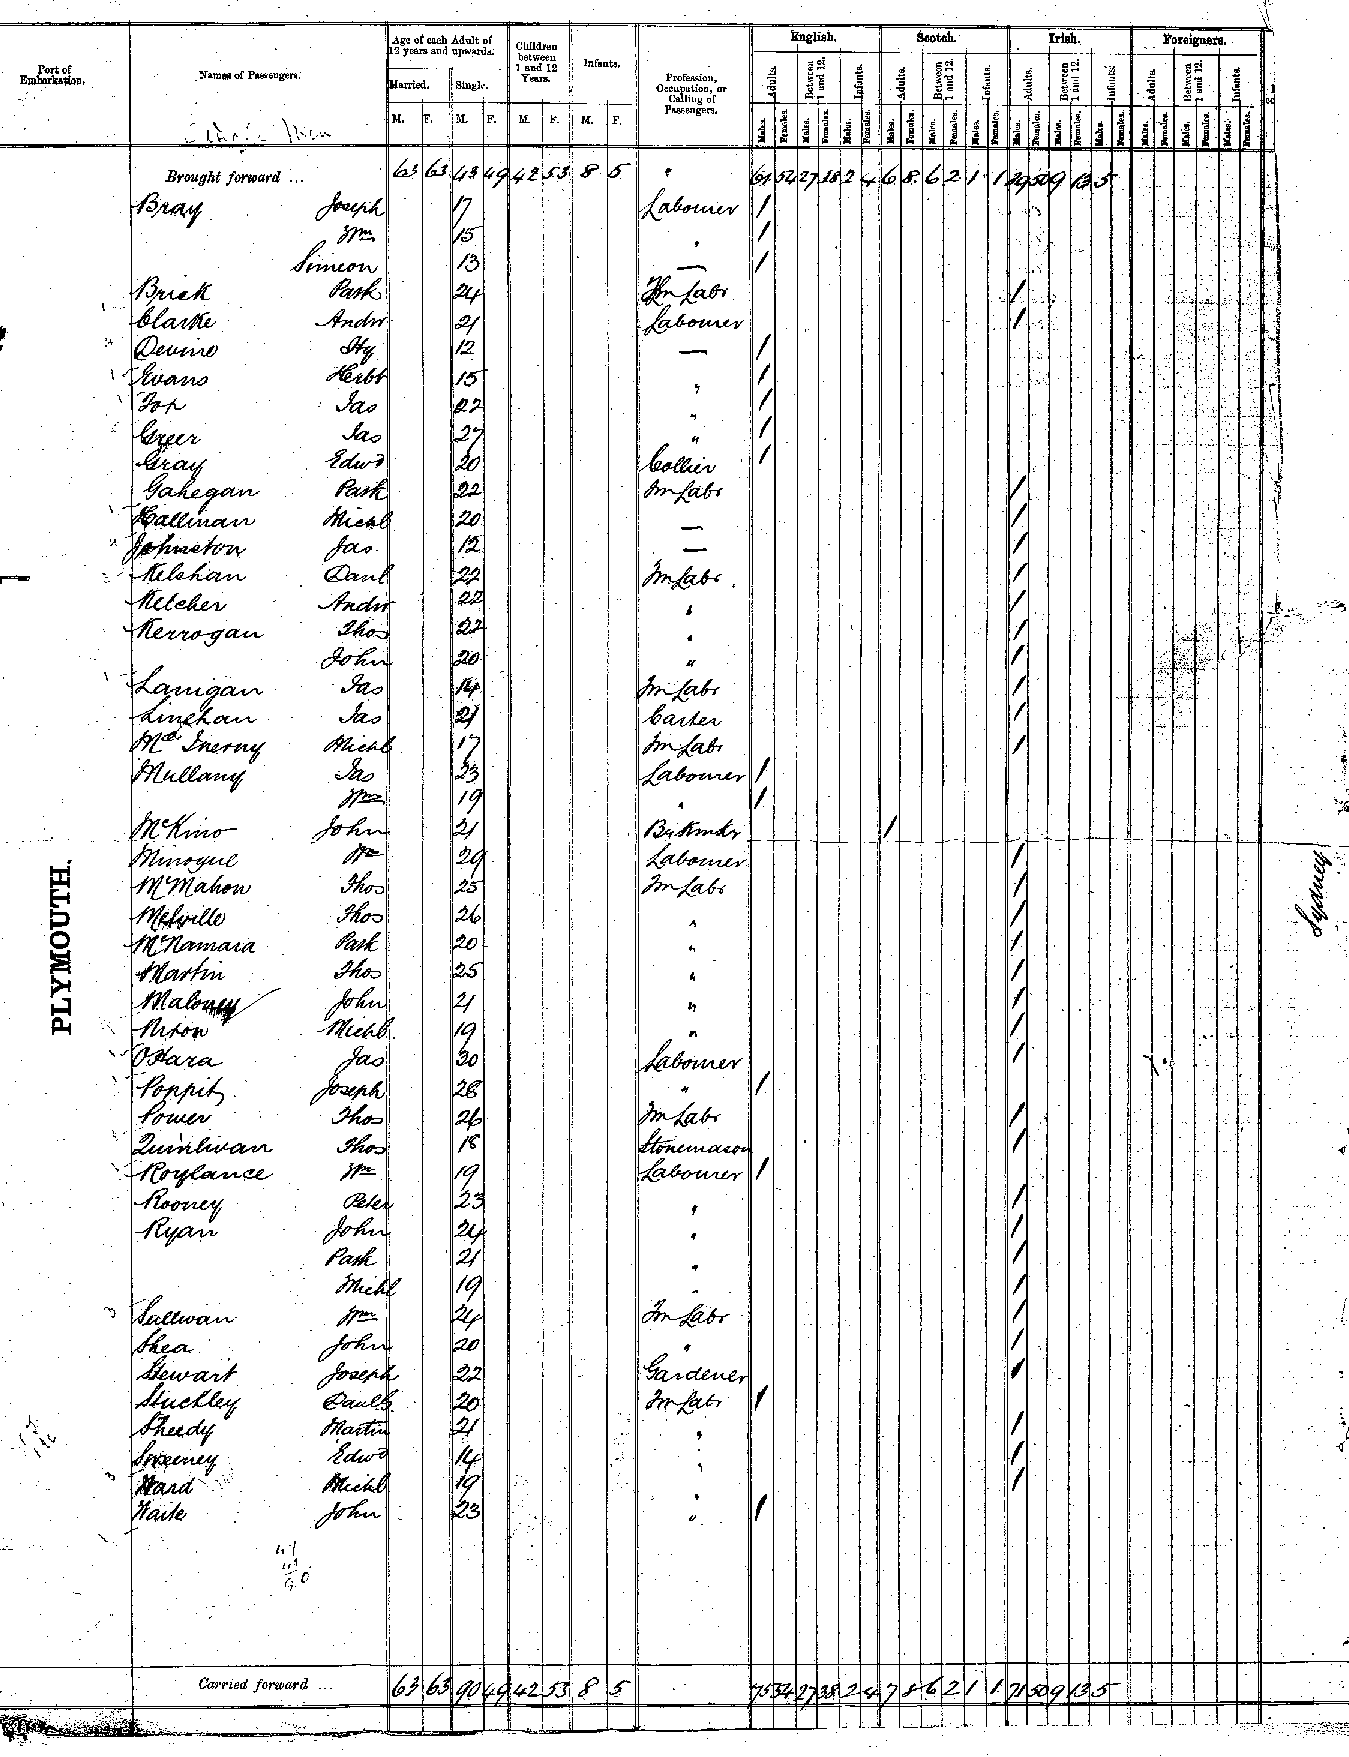 Port of Embarkation.
Names of Passengers.
Age of each Adult of 12 years and upwards.
Married. Single.
M. F. M. F.
Children between 1 and 12 Years.
M. F.
Infants.
M. F.
Profession, Occupation, or Calling of Passengers.
English. Scotch. Irish. Foreigners.
Adults. Between 1 and 12. Infants. Adults. Between 1 and 12. Infants. Adults. Between 1 and 12. Infants. Adults. Between 1 and 12. Infants.
Males. Females. Males. Females. Males. Females. Males. Females. Males. Females. Males. Females. Males. Females. Males. Females. Males. Females. Males. Females. Males. Females. Males. Females.
Brought forward ... 63 63 43 49 42 53 8 5 " 61 54 27 38 2 4 6 8 6 2 1 1 39 50 9 13 5
Bray Joseph 17 Labourer /
Wm 15 " /
Simeon 13 — /
Brick Patk 24 Fm Labr /
Clarke Andw 21 Labourer /
Devine Hy 12 — /
Evans Herbt 15 " /
Fox Jas 22 " /
Greer Jas 27 " /
Gray Edwd 20 Collier /
Gahegan Patk 22 Fm Labr /
Hallinan Michl 20 — /
Johnston Jas 12 — /
Kelshan Danl 22 Fm Labr /
Kelcher Andw 22 " /
Kerrogan Thos 22 " /
John 20 " /
Lanigan Jas 14 Fm Labr /
Linehan Jas 21 Carter /
Mc Inerny Michl 17 Fm Labr /
Mullany Jas 23 Labourer /
Wm 19 " /
McKino John 21 /
Minogue Wm 29 Labourer /
McMahon Thos 25 Fm Labr /
Melville Thos 26 " /
McNamara Patk 20 " /
Martin Thos 25 " /
Maloney John 21 " /
Nixon Michl 19 " /
OHara Jas 30 Labourer /
Poppit Joseph 28 " /
Power Thos 26 Fm Labr /
Quinlivan Thos 18 Stonemason /
Roylance Wm 19 Labourer /
Rooney Peter 23 " /
Ryan John 24 " /
Patk 21 " /
Michl 19 " /
Sullivan Wm 24 Fm Labr /
Shea John 20 " /
Stewart Joseph 22 Gardener /
Stuchley 20 Fm Labr /
Sheedy Martin 21 " /
Sweeney Edwd 14 " /
Ward Michl 19 " /
Waite John 23 " /
PLYMOUTH.
Sydney
47
43
90
Carried forward ... 63 63 90 49 42 53 8 5 75 54 27 38 2 4 7 8 6 2 1 1 71 50 9 13 5